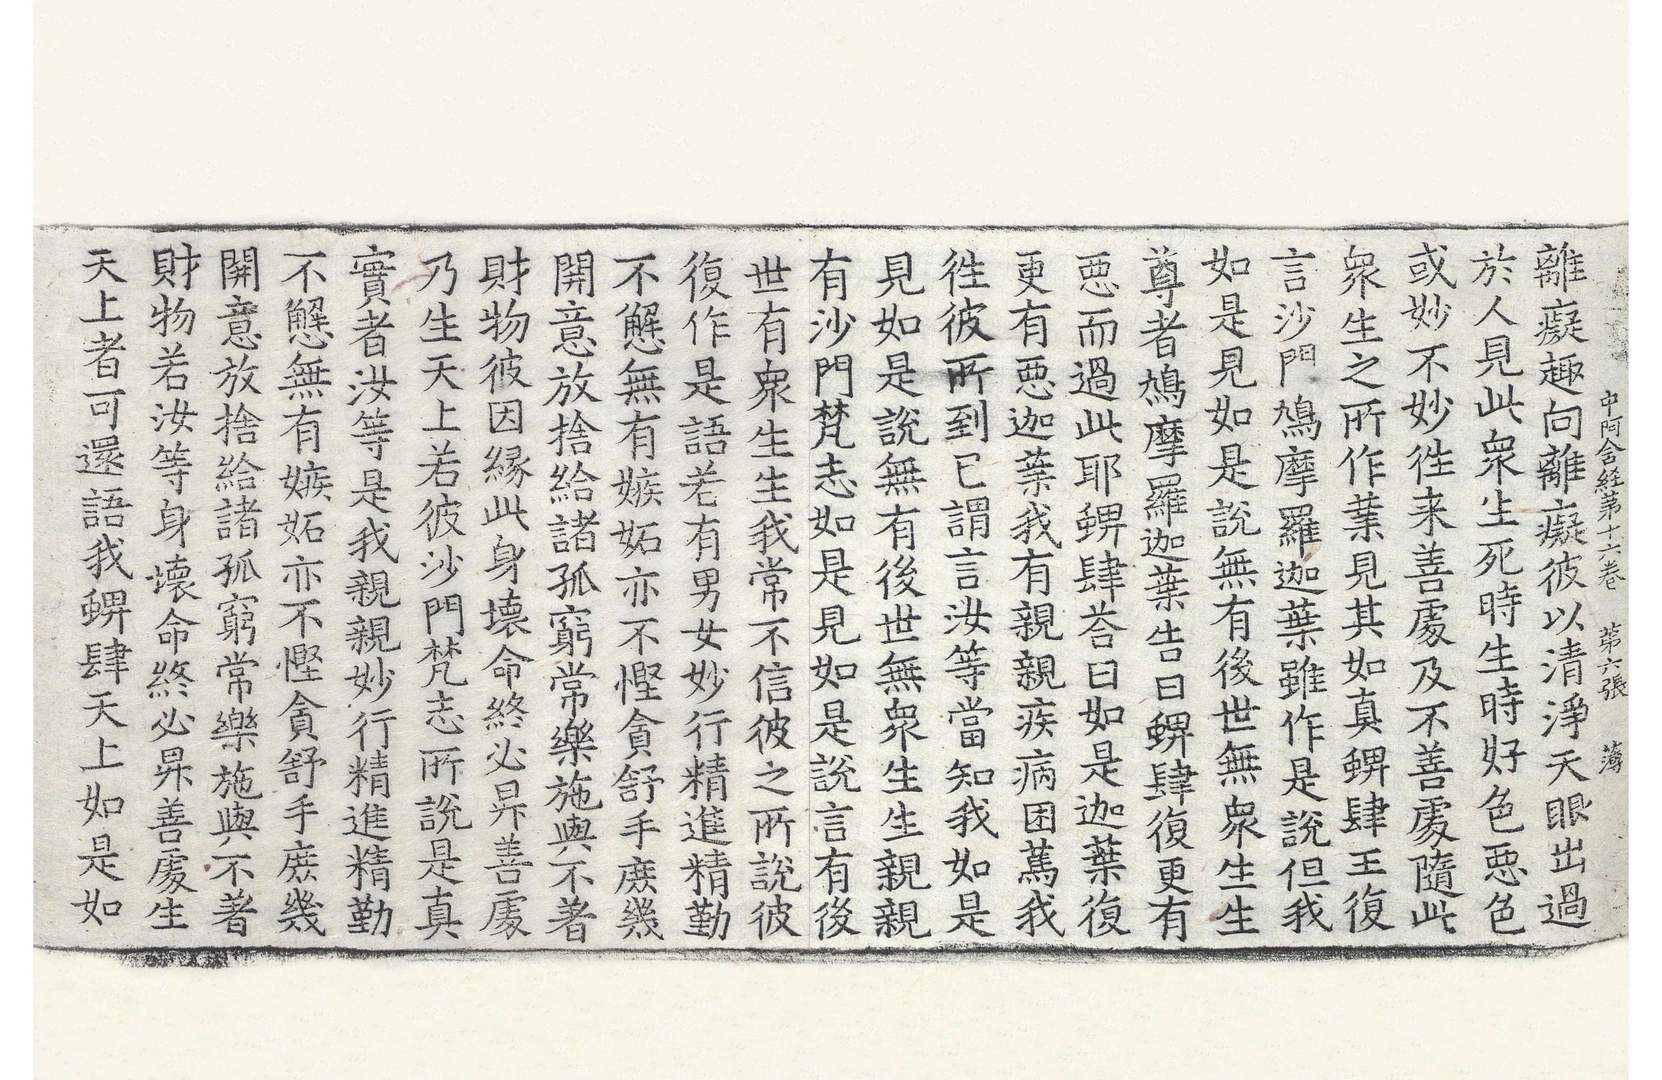 中阿含経第十六卷 第六張 薄
離癡趣向離癡彼以清淨天眼出過
於人見此衆生死時生時好色惡色
或妙不妙徃来善處及不善處隨此
衆生之所作業見其如真蜱肆王復
言沙門鳩摩羅迦葉雖作是説但我
如是見如是説無有後世無衆生生
尊者鳩摩羅迦葉告曰蜱肆復更有
惡而過此耶蜱肆荅曰如是迦葉復
更有惡迦葉我有親親疾病困萬我
徃彼所到已謂言汝等當知我如是
見如是說無有後世無衆生生親親
有沙門梵志如是見如是説言有後
世有衆生生我常不信彼之所說彼
復作是語若有男女妙行精進精勤
不懈無有嫉妬亦不慳貪舒手庶幾
開意放捨給諸孤窮常樂施與不著
財物彼因縁此身壊命終必昇善處
乃生天上若彼沙門梵志所説是真
實者汝等是我親親妙行精進精勤
不懈無有嫉妬亦不慳貪舒手庶幾
開意放捨給諸孤窮常樂施與不著
財物若汝等身壊命終必昇善處生
天上者可還語我蜱肆天上如是如